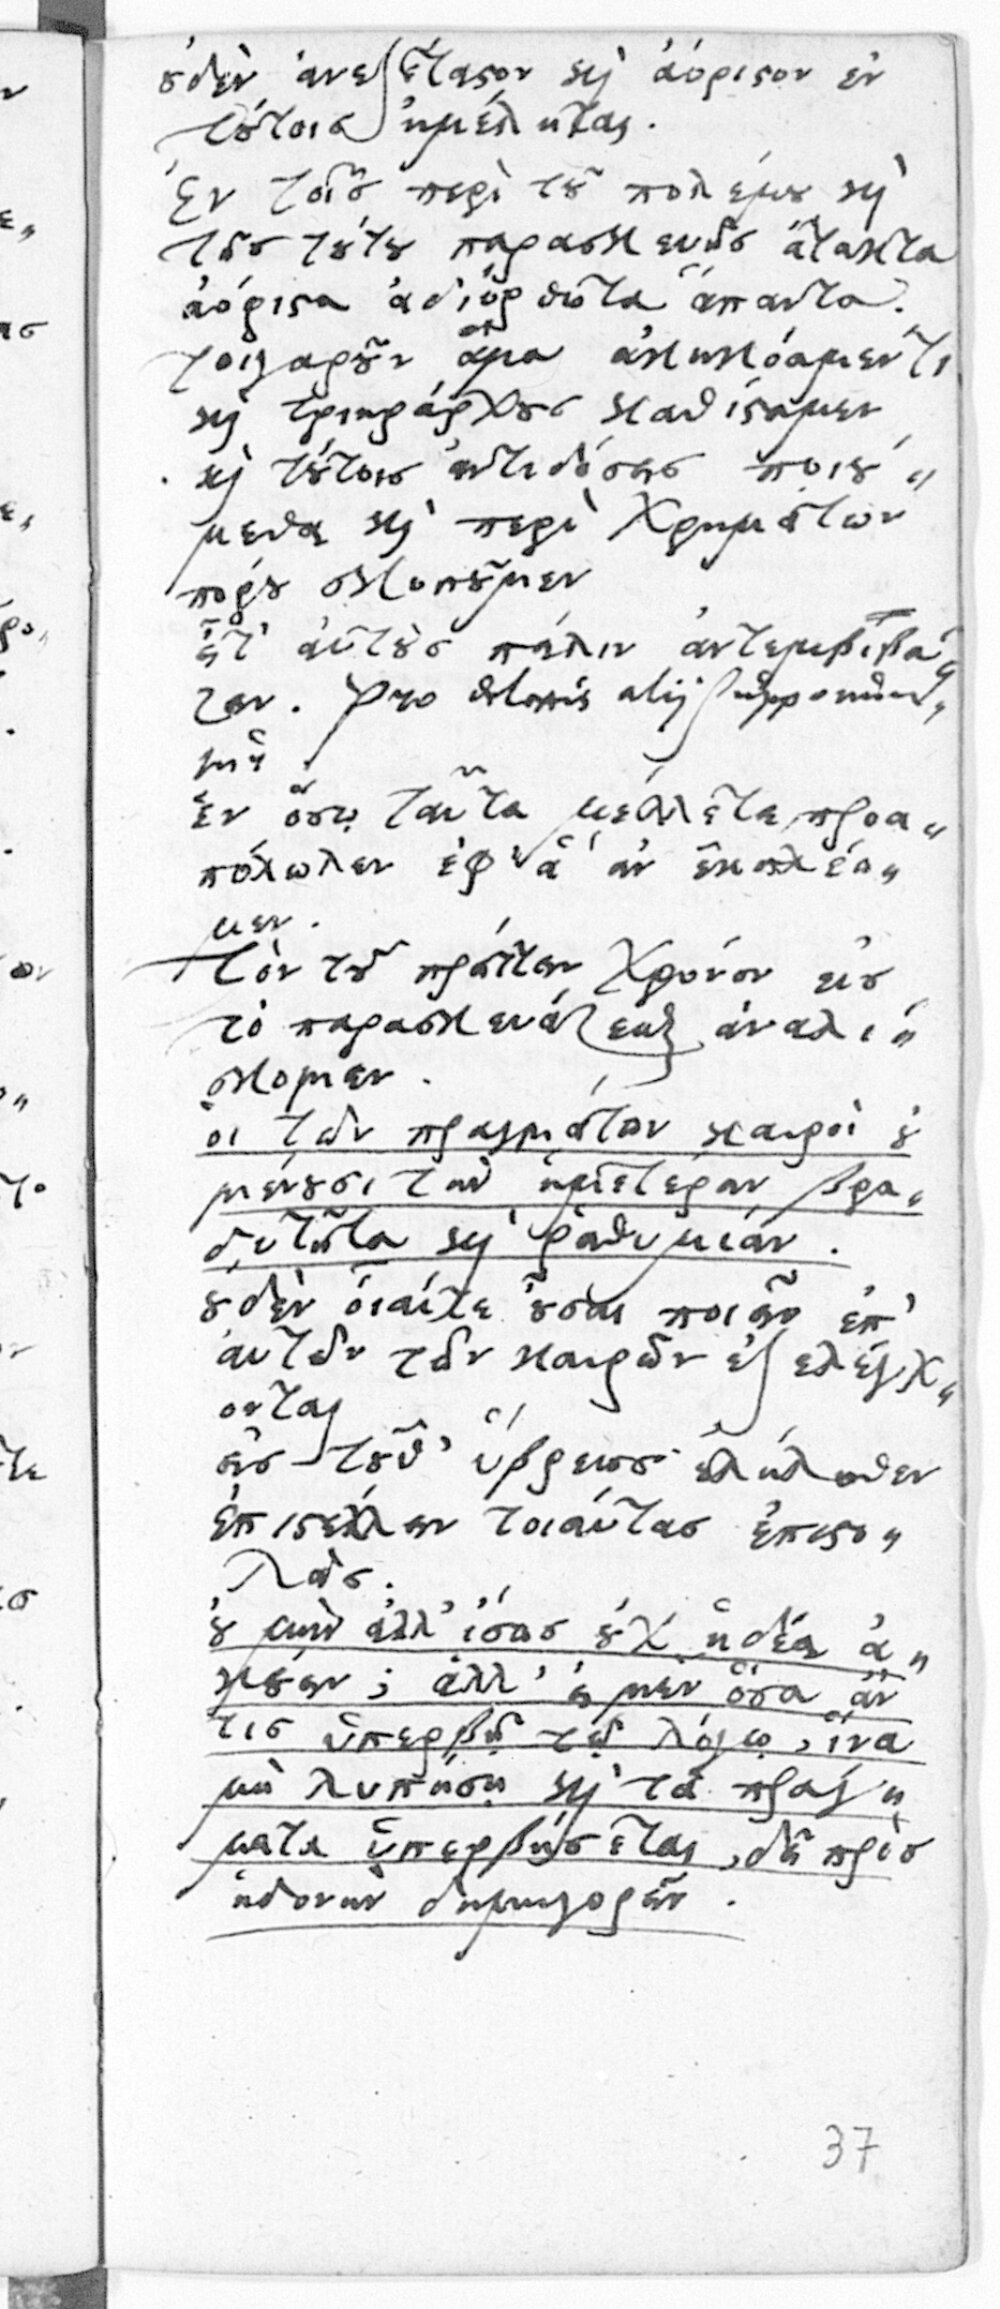 ȣδὲν ἀνεξέταστον κὶ ἀόριστον ἐν
τȣ́τοισ ἠμέληται.
Ἐν τοῖσ περὶ τȣ͂ πολέμȣ κὶ
τῆσ τȣ́τȣ παρασκευῆσ ἄτακτα
ἀόριστα ἀδιόρθωτα ἅπαντα.
τοιγαρȣ͂ν ἅμα ἀκηκόαμέν τι
κὶ τριηράρχȣσ καθίσταμεν
κὶ τȣ́τοισ ἀντιδόσεισ ποιȣ́„
μεθα κὶ περὶ χρημάτων
πόρȣ σκοπȣ͂μεν
εἶτ' αὐτȣ̀σ πάλιν ἀντεμβιβά„
ζειν. Pro
Ἐν ὅσῳ ταῦτα μέλλεται προα„
πόλωλεν ἐφ' ἃ ἂν ἐκπλέω„
μεν.
τὸν τȣ͂ πράττειν χρόνον εἰσ
τὸ παρασκευάζεσθαι ἀναλί„
σκομεν.
οἱ τῶν πραγμάτων καιροὶ ȣ̓
μένȣσι τὴν ἡμετέραν βρα„
δυτῆτα κὶ ῥαθυμίαν.
ȣδὲν οἷαίτε ȣ̓͂σαι ποιεῖν ἐπ'
αυτῶν τῶν καιρῶν ἐξελέγχ„
ονται
εἰσ τȣ͂θ' ὕβρεωσ ἐλήλυθεν
ἐπιστέλλειν τοιαύτασ ἐπιστο„
λάσ.
ȣ̓ μὴν ἀλλ' ἴσωσ ȣ̓χ' ἡδέα ἀ„
κȣ́ειν; ἀλλ' εἰ μὲν ὅσα ἄν
τισ ὑπερβῇ τῷ λόγῳ, ἵνα
μὴ λυπήσῃ κὶ τὰ πράγ„
ματα ὑπερβήσεται, δεῖ πρὸσ
ἡδονὴν δημηγορεῖν.
37